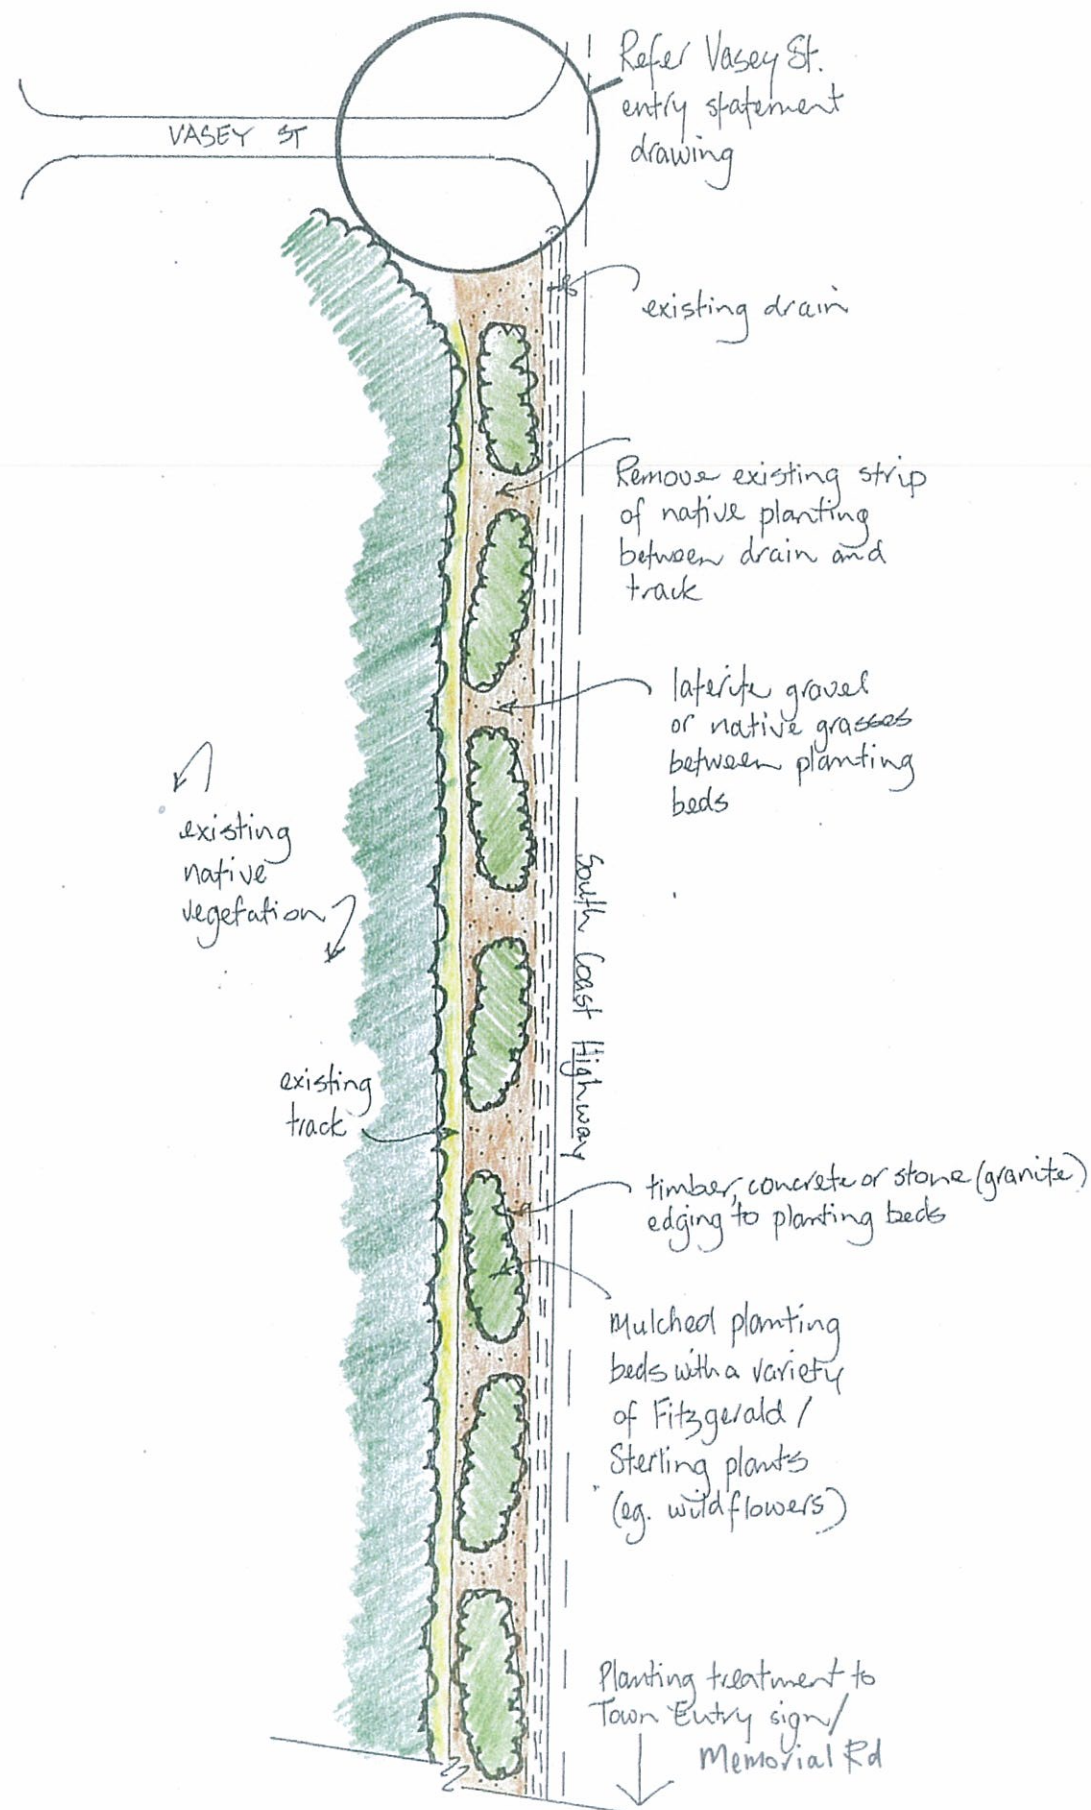 Refer Vasey St.
entry statement
drawing
VASEY ST
existing drain
Remove existing strip
of native planting
between drain and
track
laterite gravel
or native grasses
between planting
beds
existing
native
vegetation
South Coast Highway
existing
track
timber, concrete or stone (granite)
edging to planting beds
Mulched planting
beds with a variety
of Fitzgerald /
Sterling plants
(eg. wildflowers)
Planting treatment to
Town Entry sign/
Memorial Rd